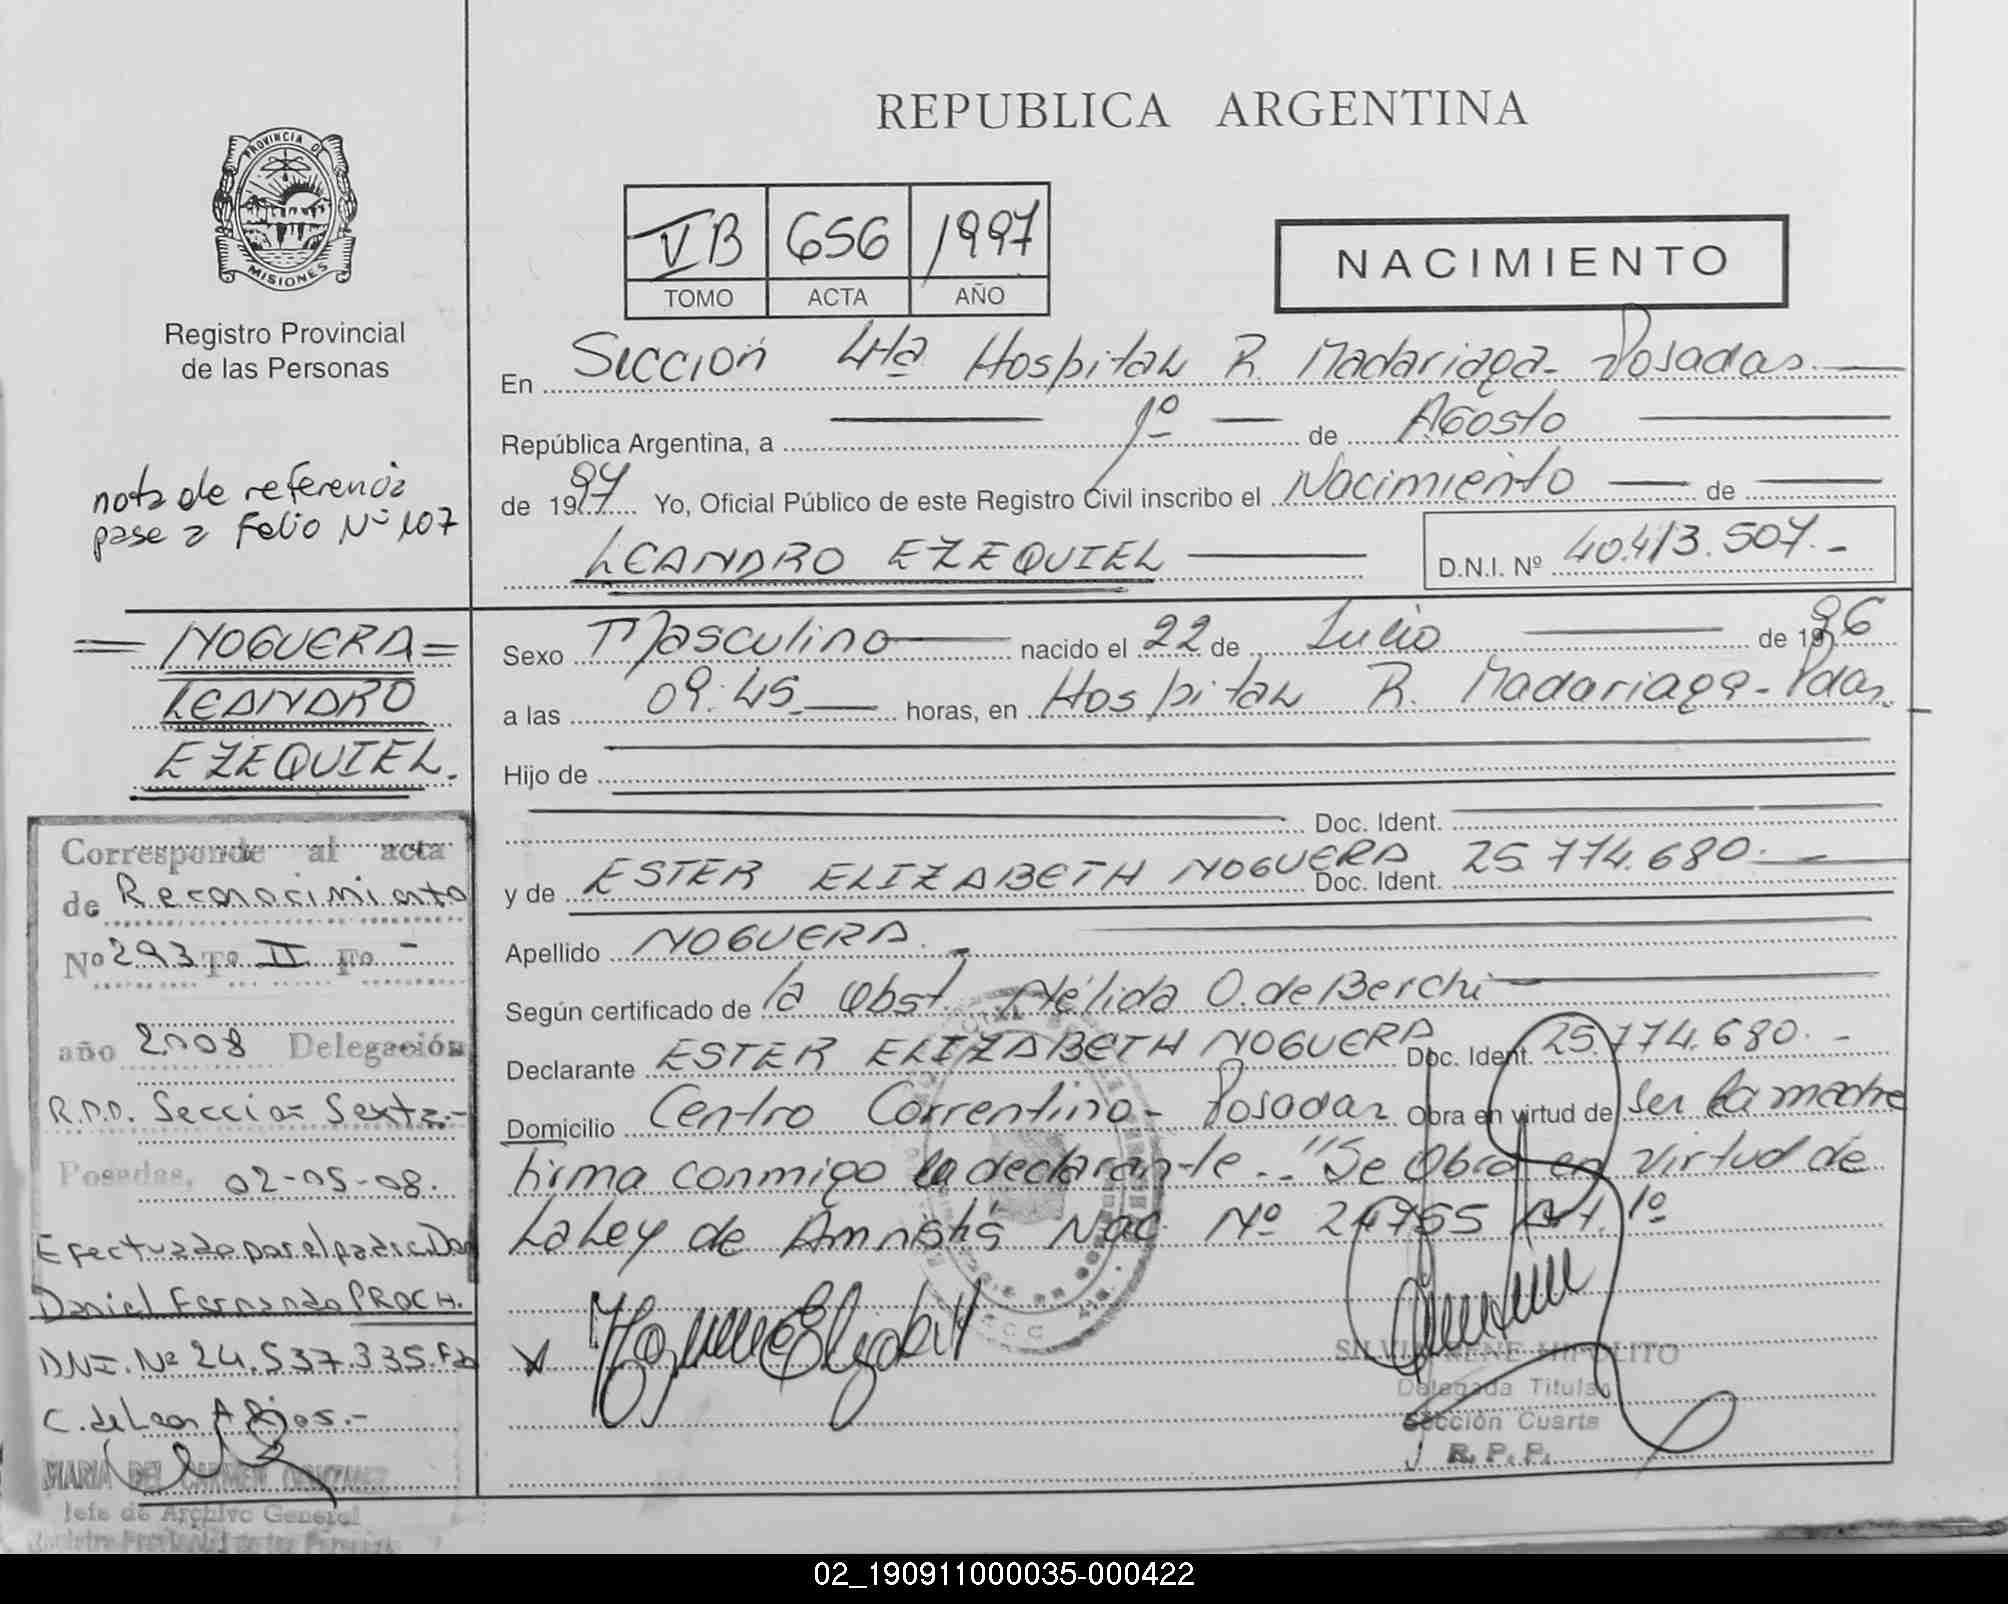 PROVINCIA DE
MISIONES
Registro Provincial
de las Personas
nota de referencia
pase a Folio Nº 107
= NOGUERA =
LEANDRO
EZEQUIEL.
Corresponde al acta
de Reconocimiento
Nº 293 Tº II Fº -
año 2008 Delegación
R.P.P. Sección Sexta.-
Posadas, 02-05-08.
Efectuado por el padre: Don
Daniel Fernando PROCH.
DNI. Nº 24.537.335. Fdo
C. de Leon
MARIA DEL CARMEN
Jefe de Archivo General
Registro Provincial de las Personas
REPUBLICA ARGENTINA
VB 656 1997
TOMO ACTA AÑO
NACIMIENTO
En Sección 4ta Hospital R. Madariaga - Posadas.
República Argentina, a 1º de Agosto
de 1997 Yo, Oficial Público de este Registro Civil inscribo el Nacimiento de
LEANDRO EZEQUIEL D.N.I. Nº 40.413.507.-
Sexo Masculino nacido el 22 de Julio de 1996
a las 09:45 horas, en Hospital R. Madariaga - Pdas.
Hijo de
Doc. Ident.
y de ESTER ELIZABETH NOGUERA Doc. Ident. 25.774.680.
Apellido NOGUERA.-
Según certificado de la Obst. Nélida O. de Berchi
Declarante ESTER ELIZABETH NOGUERA Doc. Ident. 25.774.680.-
Domicilio Centro Correntino - Posadas Obra en virtud de ser la madre
firma conmigo la declarante.- "Se Obra en Virtud de
La Ley de Amnistía Nac. Nº 24755 Art. 1º
SILVIA IRENE HIPOLITO
Delegada Titular
Sección Cuarta
R. P. P.
02_190911000035-000422